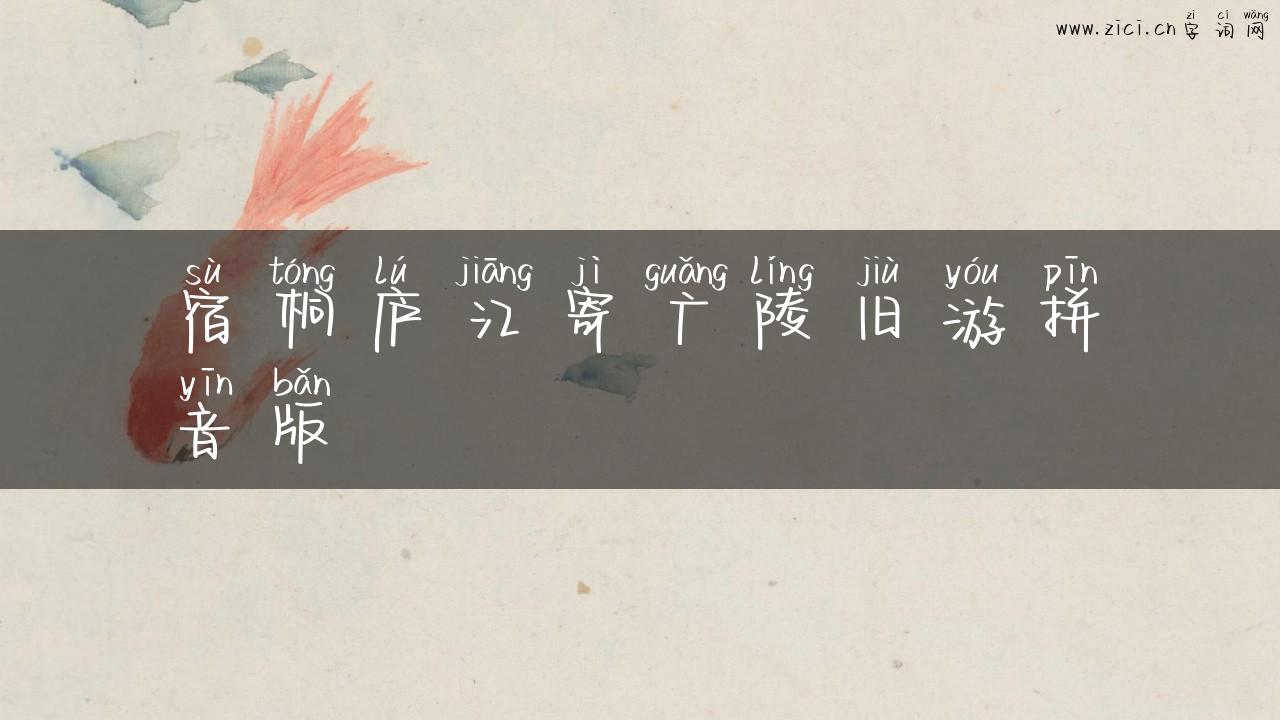 zì cí wǎng
www.zici.cn 字 词 网
sù tóng lú jiāng jì guǎng líng jiù yóu pīn
宿 桐 庐 江 寄 广 陵 旧 游 拼
yīn bǎn
音 版